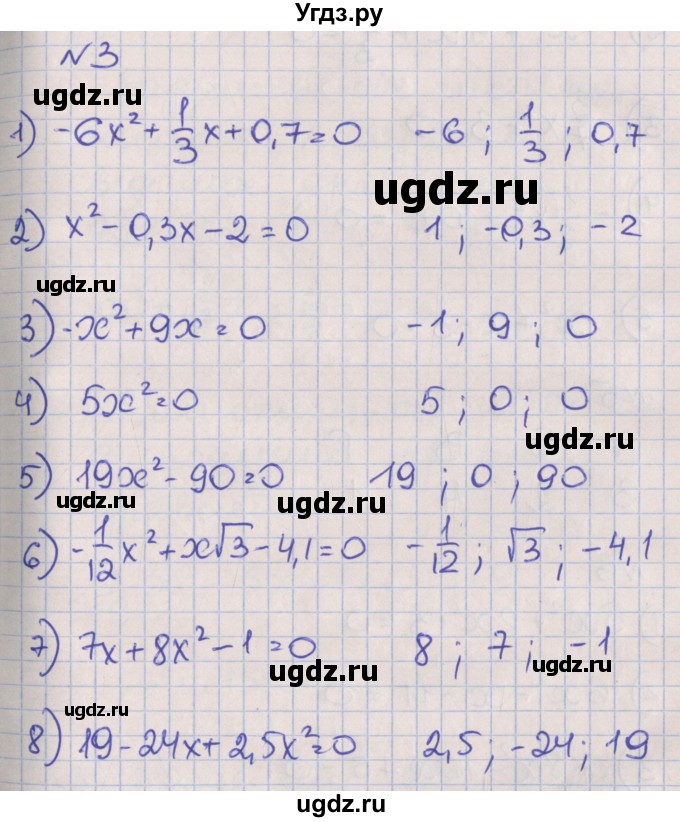 Угдз.ру
N 3
ugdz.ru
1) -6x² + 1/3 x + 0,7 = 0 -6 ; 1/3 ; 0,7
ugdz.ru
2) x² - 0,3x - 2 = 0 1 ; -0,3 ; -2
ugdz.ru
3) -x² + 9x = 0 -1 ; 9 ; 0
4) 5x² = 0 5 ; 0 ; 0
ugdz.ru
5) 19x² - 90 = 0 19 ; 0 ; 90
ugdz.ru ugdz.ru
6) -1/12 x² + x√3 - 4,1 = 0 -1/12 ; √3 ; -4,1
7) 7x + 8x² - 1 = 0 8 ; 7 ; -1
ugdz.ru ugdz.ru
ugdz.ru
8) 19 - 24x + 2,5x² = 0 2,5 ; -24 ; 19
ugdz.ru